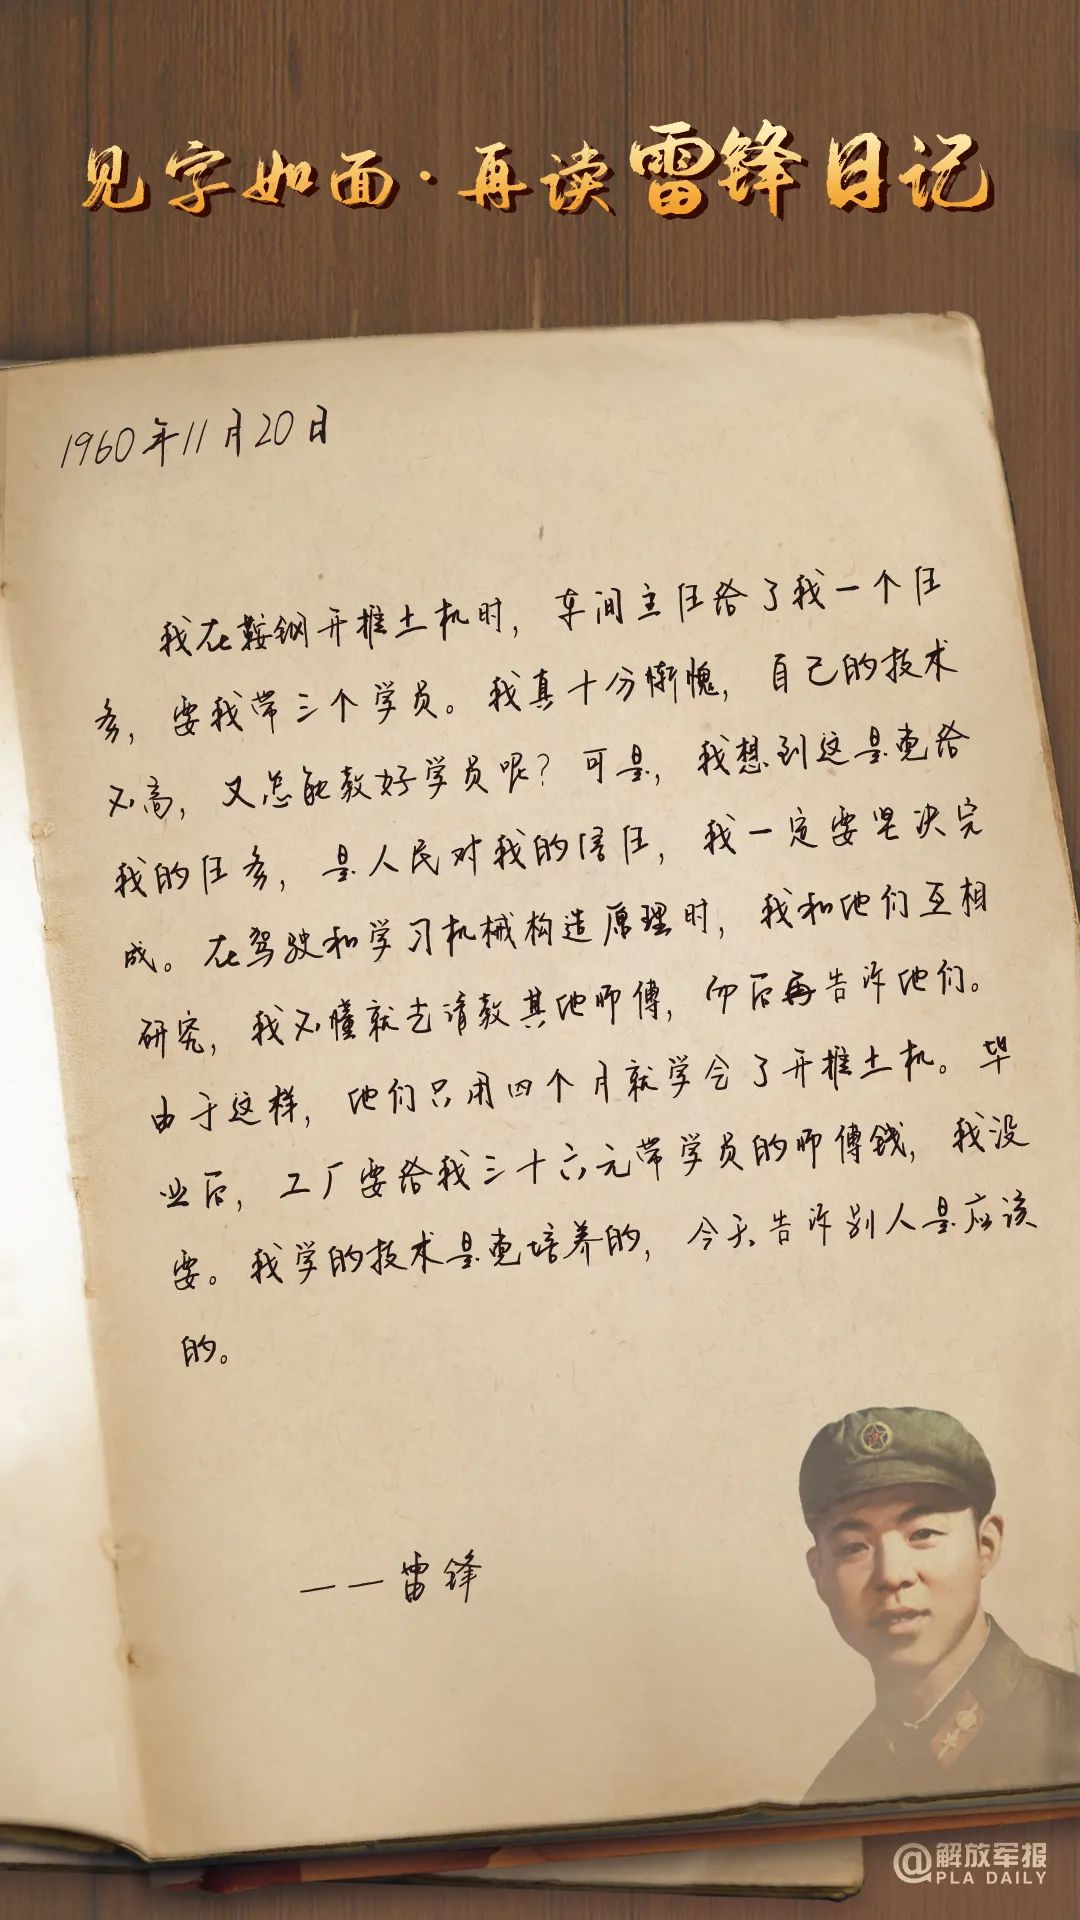 见字如面·再读雷锋日记
1960年11月20日
我在鞍钢开推土机时，车间主任给了我一个任
务，要我带三个学员。我真十分惭愧，自己的技术
不高，又怎能教好学员呢？可是，我想到这是党给
我的任务，是人民对我的信任，我一定要坚决完
成。在驾驶和学习机械构造原理时，我和他们互相
研究，我不懂就去请教其他师傅，而后再告诉他们。
由于这样，他们只用四个月就学会了开推土机。毕
业后，工厂要给我三十六元带学员的师傅钱，我没
要。我学的技术是党培养的，今天告诉别人是应该
的。
——雷锋
@解放军报
PLA DAILY